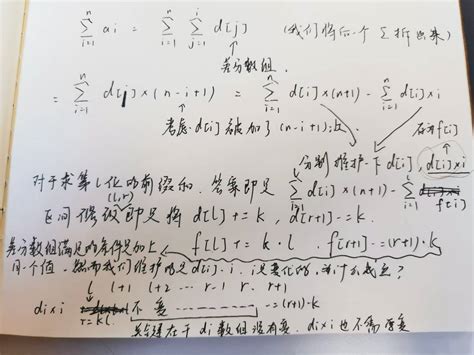 ∑_{i=1}^{n} ai = ∑_{i=1}^{n} ∑_{j=1}^{i} d[j] (我们将后一个∑拆出来)
差分数组.
= ∑_{i=1}^{n} d[i]×(n-i+1) = ∑_{i=1}^{n} d[i]×(n+1) - ∑_{i=1}^{n} d[i]×i
考虑d[i]被加了(n-i+1)次 存为f[i]
分别维护一下d[i], d[i]×i
对于求第i位的前缀和, 答案即是 ∑ d[i]×(n+1) - ∑ f[i]
区间(l,r)修改即是将 d[l]+=k, d[r+1]-=k.
差分数组满足的条件是加上 f[l]+=k·l f[r+1]-=(r+1)·k
同一个值. 然而我们维护的是d[i]·i, 是变化的, 为什么成立?
l l+1 l+2 ... r-1 r r+1
di×i += k·l 不变 -=(r+1)·k
关键在于di数组没有变, di×i也不需要变